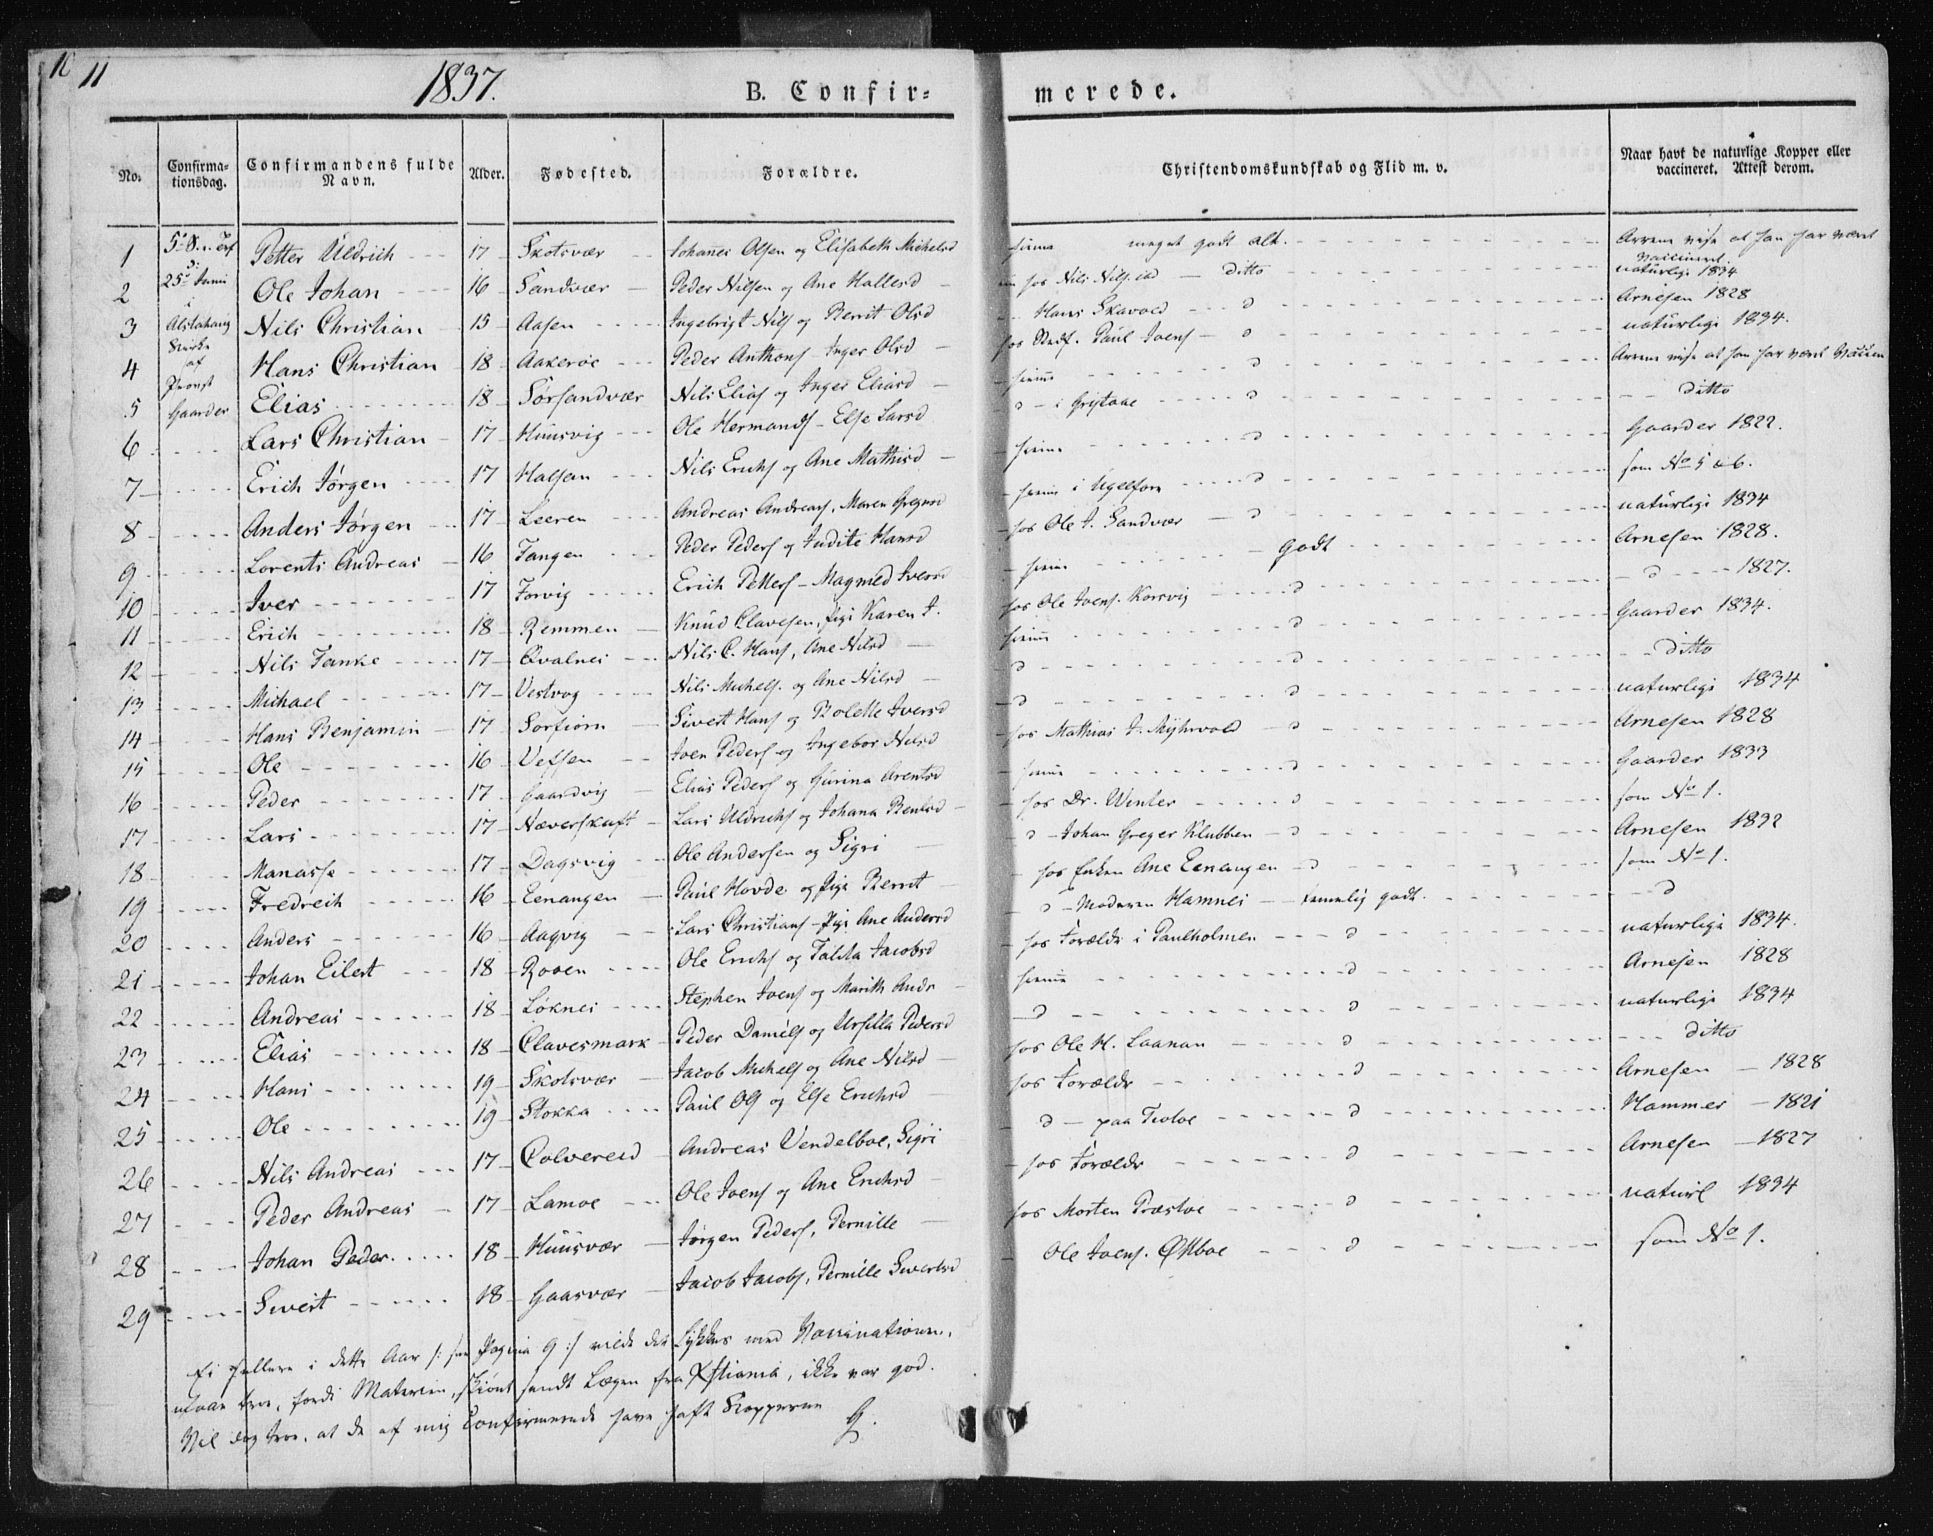 10 11
1837.
B. Confir= merede.
No. Confirma-tionsdag. Confirmandens fulde Navn. Alder. Fødested. Forældre. Christendomskundskab og Flid m. v. Naar havt de naturlige Kopper eller vaccineret. Attest derom.
5te S. e. Tref
d.
25de Juni
i
Alstahaug
Kirke
af
Provst
Gaarder
1 Petter Uldrich 17 Skotsvær Johanes Olsen og Elisabeth Mickelsd hiema meget godt alt. Arrene vise at han har været vaccineret.
2 Ole Johan 16 Sandvær Peder Nilsen og Ane Hallesd hos Nils ditto naturlige 1834
3 Nils Christian 15 Aasen Ingebrigt Nils og Berrit Olsd Hans Skavold d Arnesen 1828
4 Hans Christian 18 Aakeröe Peder Anthons - Inger Olsd hos Paul Joens d naturlige 1834.
5 Elias 18 Sörsandvær Nils Elias og Inger Eliasd hiema d Arrene vise at han har været Vaccin
6 Lars Christian 17 Huusvig Ole Hermands - Else Larsd d - i d ditto
7 Erich Jörgen 17 Halsen Nils Erichs og Ane Mathisd hiema d Gaarder 1822.
8 Anders Jörgen 17 Leeren Andreas Andreas, Maren Gregersd hiema i d som No 5 & 6.
9 Lorents Andreas 16 Tangen Peder Peders og Judite Hansd hos Ole J. Sandvær d naturlige 1834
10 Iver 17 Forvig Erich Petters - Magmed Iversd hiema Godt Arnesen 1828.
11 Erich 18 Remmen Knud Clavesen, Pige Karen J. hos Ole Joens. Korsvig d d 1827.
12 Nils Tanke 17 Qvalnes Nils C. Hans, Ane Nilsd hiema d Gaarder 1834.
13 Michael 17 Vestvog Nils Michels. og Ane Nilsd d d ditto
14 Hans Benjamin 17 Sorfiorn Sivert Hans og Bolette Iversd d d naturlige 1834
15 Ole 16 Vefsen Joen Peders og Ingebor Nilsd hos Mathias J. Myhrvold d Arnesen 1828
16 Peder 17 Gaardvig Elias Peders og Gurina Arentsd hiema d Gaarder 1833
17 Lars 17 Næverskaft Lars Uldrichs og Johana Bentsd hos Dr. Winter d som No 1.
18 Manasse 17 Dagsvig Ole Andersen og Sigri d - Johan Greger Klubben d Arnesen 1832
19 Fredreich 16 Eenangen Paul Hovde og Pige Berret hos Enken Ane Eenangen d som No 1.
20 Anders 16 Aaqvig Lars Christians - Pige Ane Andersd d - Moderen Hamnes temmelig godt. d
21 Johan Eilert 18 Rooen Ole Erichs og Talita Jacobsd hos Forældr i Paulholmen d naturlige 1834.
22 Andreas 18 Löknes Stephen Joens og Marith Andr hiema d Arnesen 1828
23 Elias 18 Clavesmark Peder Daniels og Ursilla Pedersd d d naturlige 1834
24 Hans 19 Skotsvær Jacob Michels og Ane Nilsd hos Ole H. Laanan d ditto
25 Ole 19 Stokka Paul Ols og Else Erichsd hos Forældr d Arnesen 1828
26 Nils Andreas 17 Colvereid Andreas Vendelboe, Sigri d - paa d Hammer 1821
27 Peder Andreas 17 Lamoe Ole Joens og Ane Erichsd hos Forældr d Arnesen 1827
28 Johan Peder 18 Huusvær Jörgen Peders, Pernille hos Morten Præstöe d naturl 1834
29 Sivert 18 Gaasvær Jacob Jacobs, Pernille Sivertsd Ole Joens. d som No 1.
Ei heller i dette Aar /: see Pagina 9 :/ vilde det lykkes med Vaccinationen,
maae troe, fordi Materien, skiönt sendt Lægen fra Xstiania, ikke var god.
Vil dog troe, at de af mig Confirmerede have haft Kopperne G.